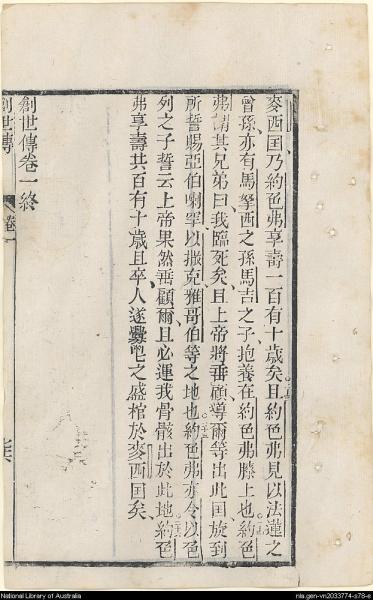 麥西囯乃約色弗享壽一百有十歲矣且約色弗見以法蓮之
曾孫亦有馬拏西之孫馬吉之子抱養在約色弗膝上也約色
弗謂其兄弟曰我臨死矣且上帝將垂顧導爾等出此囯旋到
所誓賜亞伯喇罕以撒克雅哥伯等之地也約色弗亦令以色
列之子誓云上帝果然垂顧爾且必運我骨骸出於此地約色
弗享壽共百有十歲且卒人遂釁之盛棺於麥西囯矣
創世傳卷一終
創世傳 卷一
National Library of Australia
nla.gen-vn2033774-s78-e